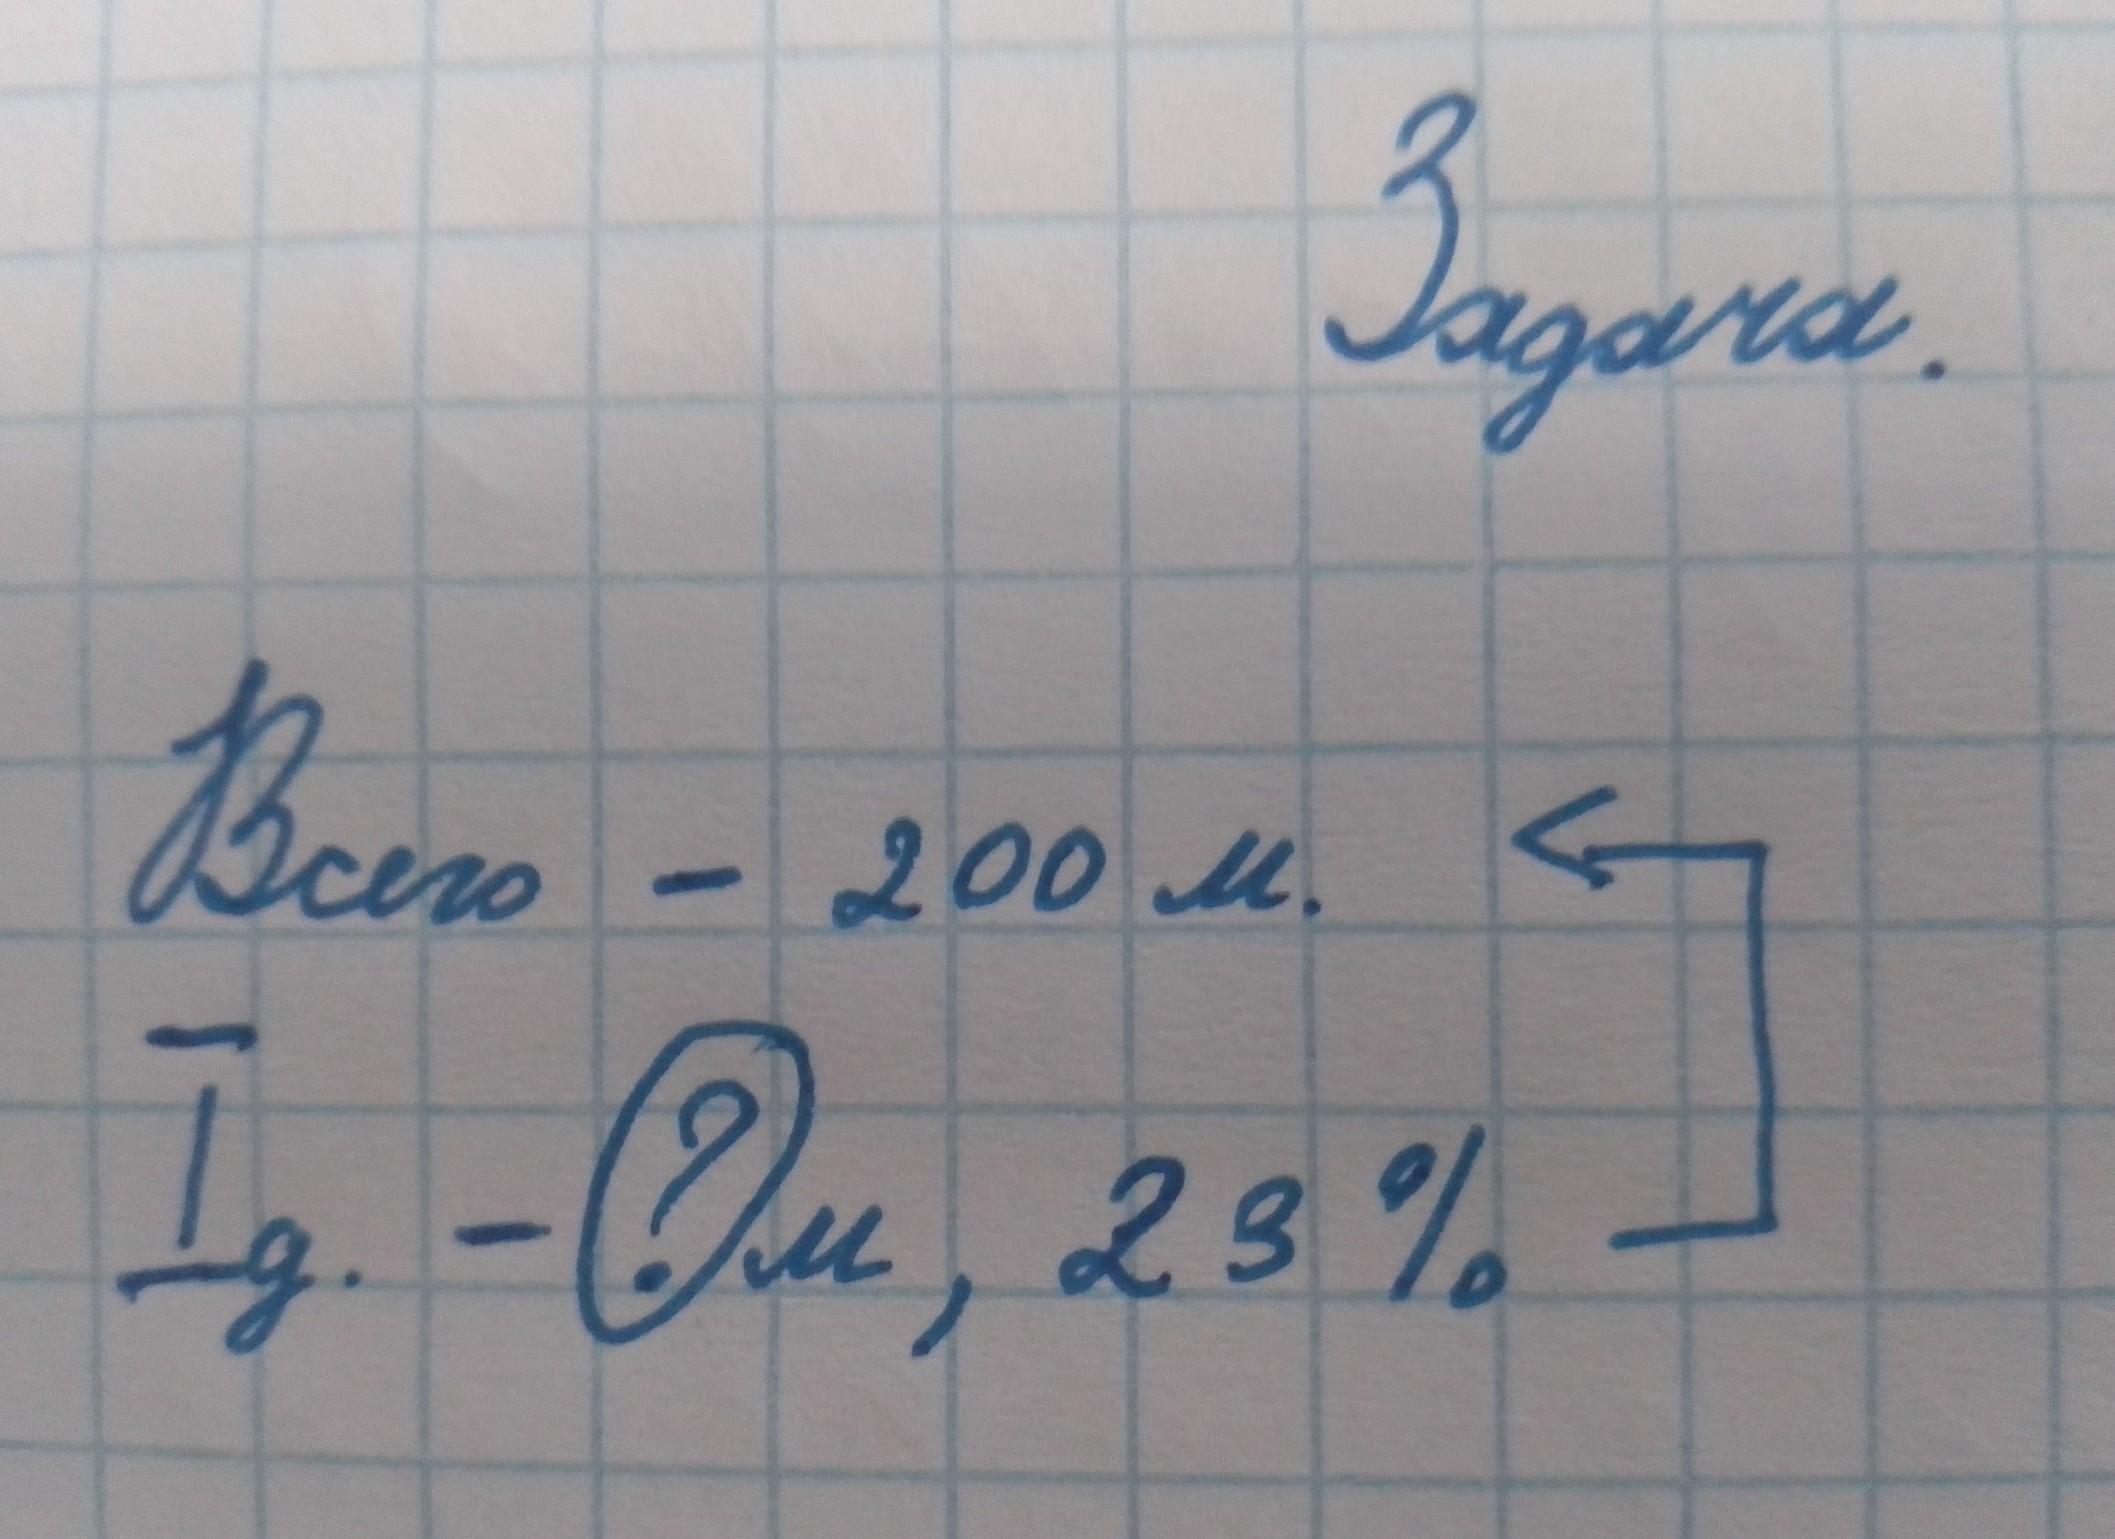 Задача.
Всего - 200 м.
I д. - ? м, 23 %